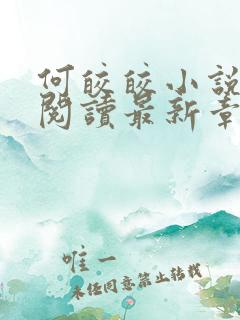 何皎皎小說
閱讀最新章
唯一
未經同意禁止轉載